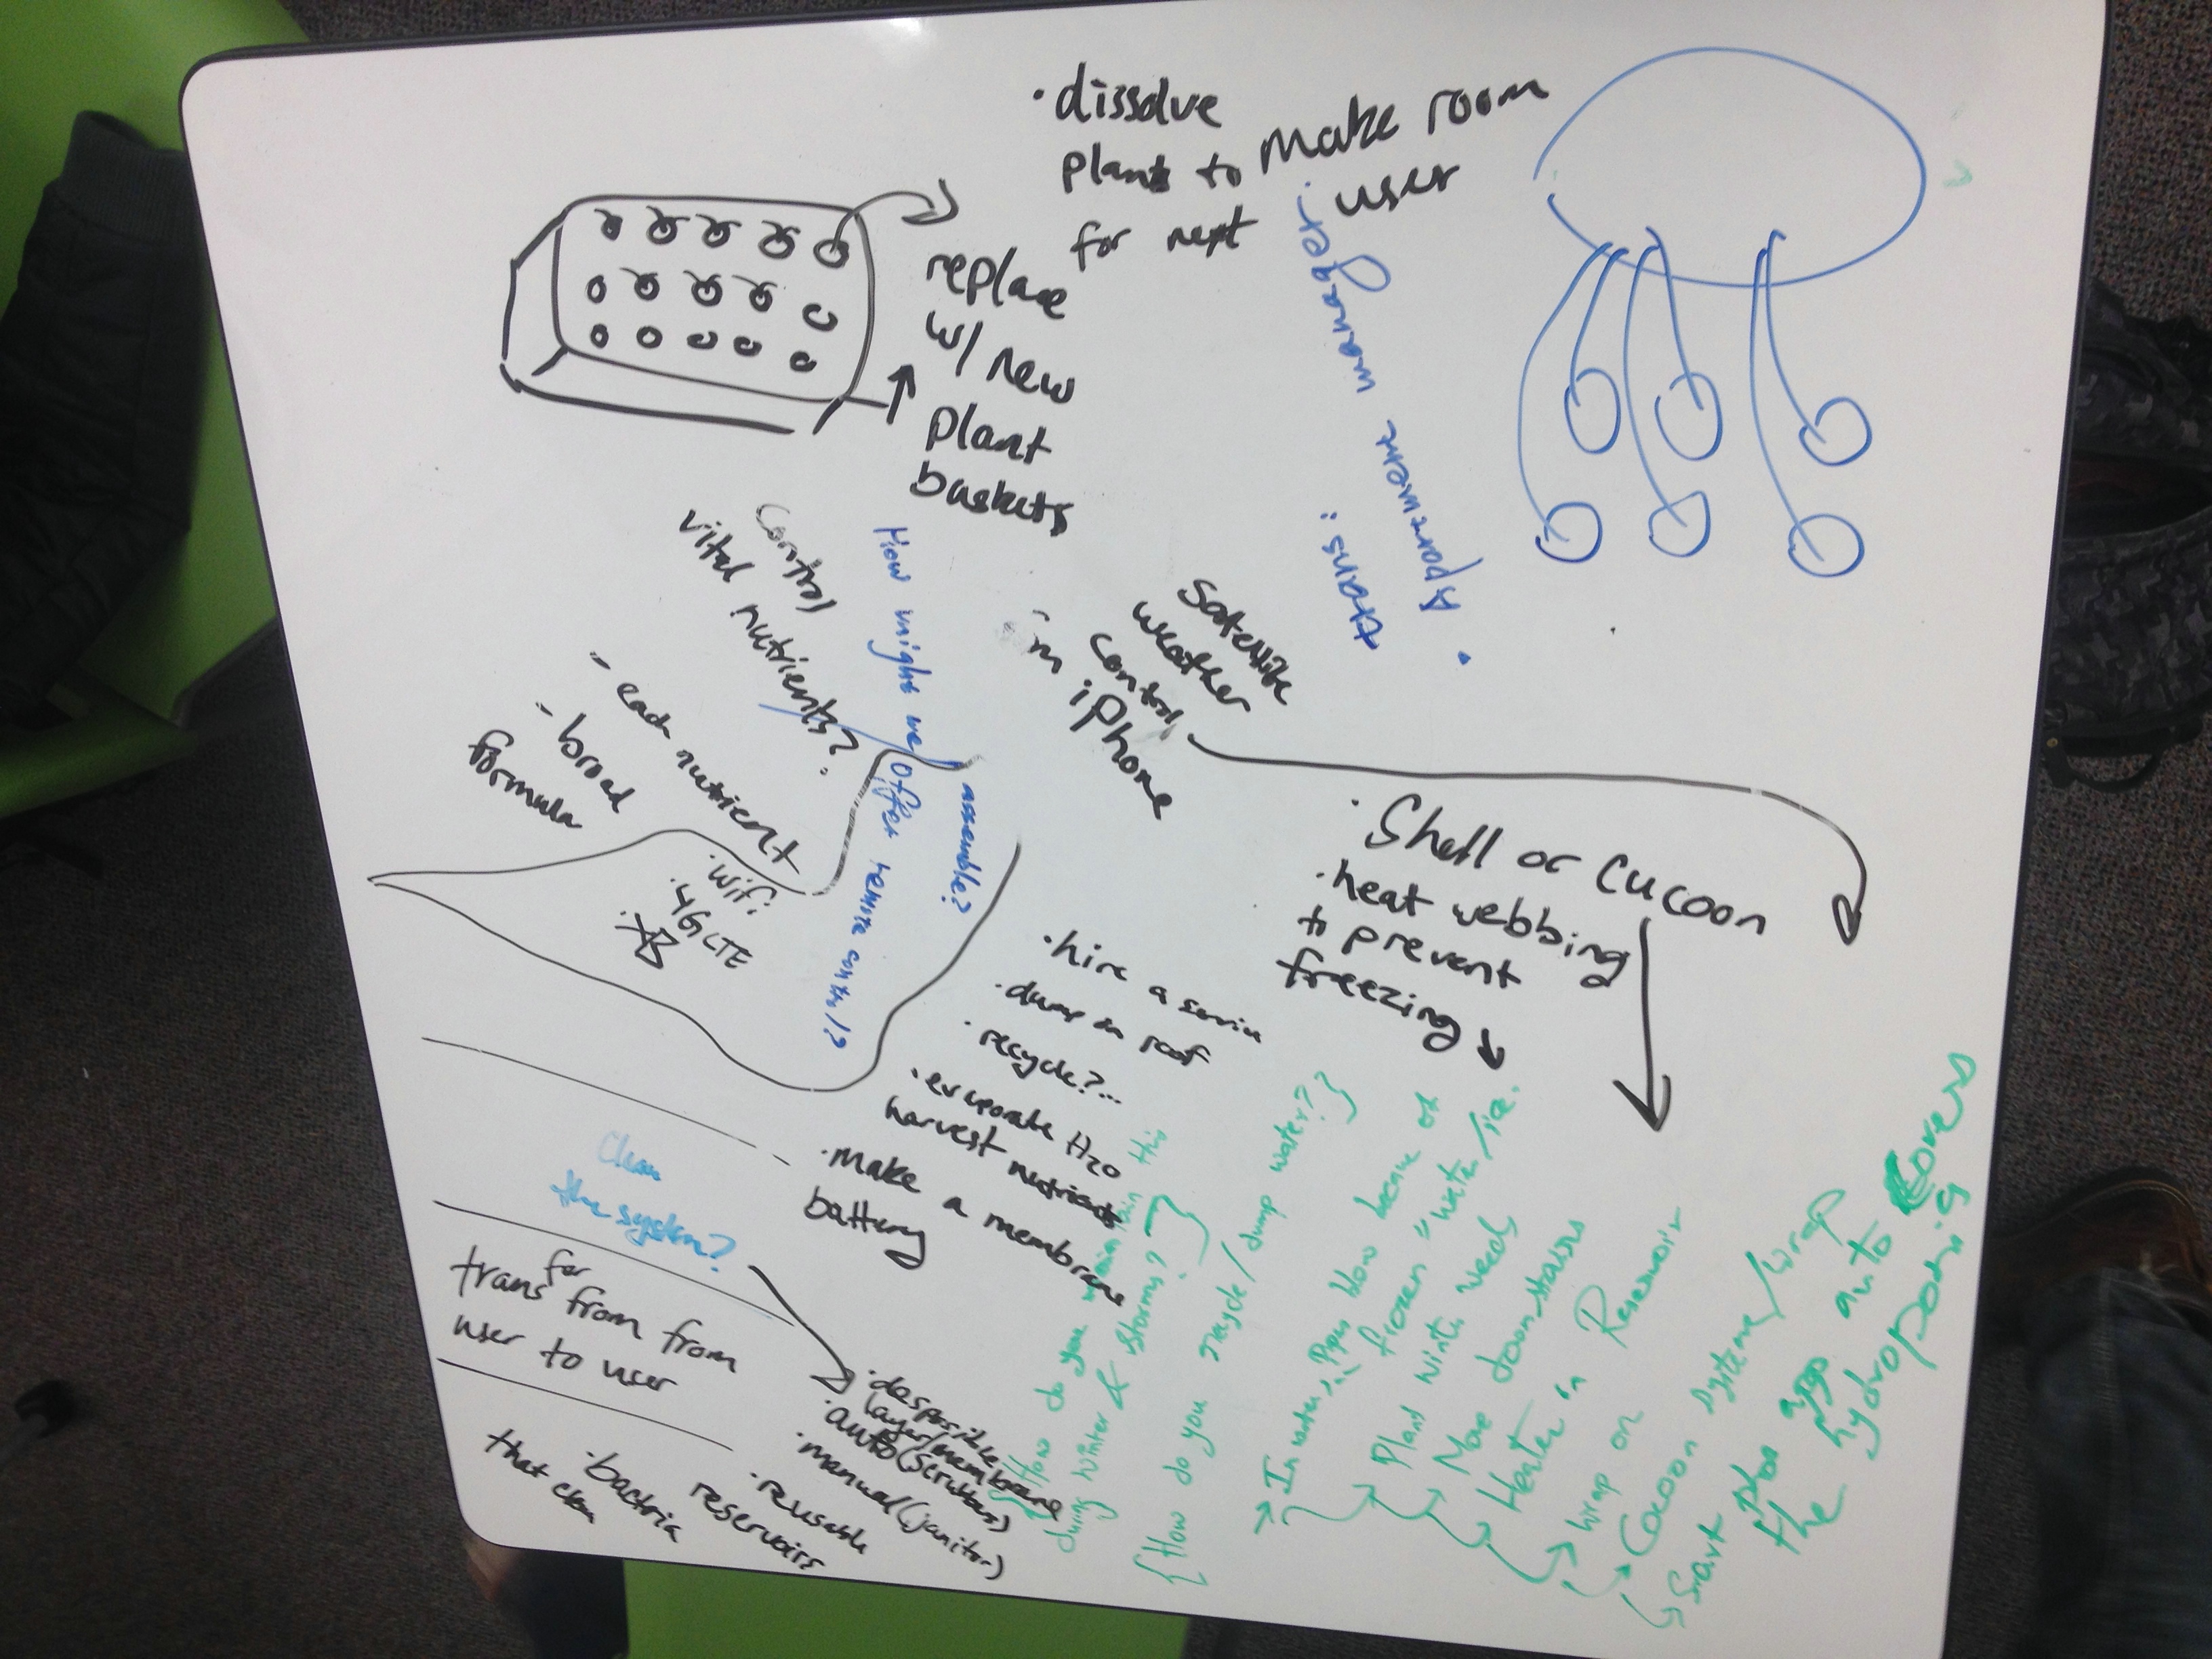 · dissolve
plants to make room
for next user
replace
w/ new
plant
baskets
trans:
· Apartment manager
Control
vital nutrients?
- each nutrient
- broad
formula
How might we offer remote control?
assemble?
· wifi
· 4G LTE
Satellite
weather
control
in iPhone
· Shell or Cucoon
· heat webbing
to prevent
freezing
· hire a service
· dump on roof
· recycle?...
· evaporate H2O
harvest nutrients
· make a membrane
battery
Clean
the system?
for
trans from from
user to user
· desposible
layer/membrane
· auto (scrubbers)
· manual (janitor)
· reusable
reservoirs
· bactria
that clean
How do you maintain this
during winter & storms?
{How do you recycle/dump water?}
In winter, pipes blow because of
frozen water/ice.
Plant winter weeds
Move downstairs
Heater in Reservoir
Wrap on
Cocoon system/wrap
Smart auto covers
the hydroponic